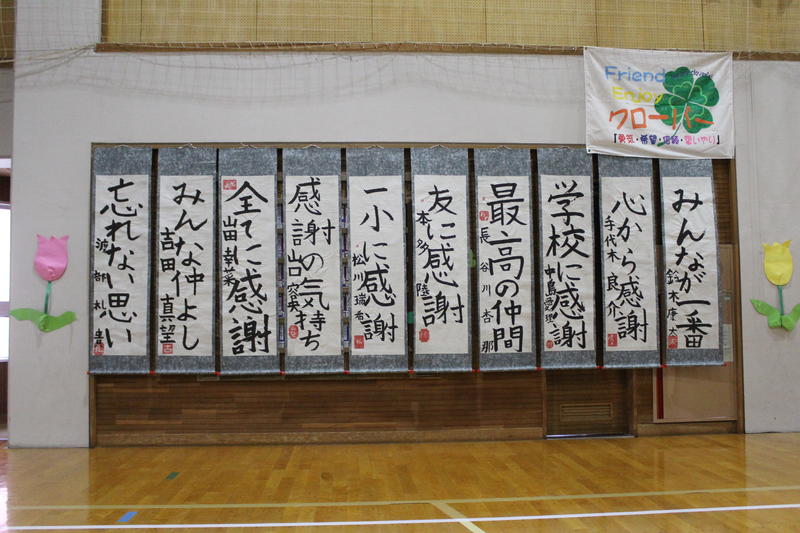 Friend
Enjoy
クローバー
「勇気・希望・信頼・思いやり」
みんなが一番
鈴木庵太
心から感謝
手代木良介
学校に感謝
最高の仲間
長谷川杏那
友に感謝
本多陸
一小に感謝
松川瑞希
感謝の気持ち
全てに感謝
みんな仲よし
吉田真望
忘れない思い